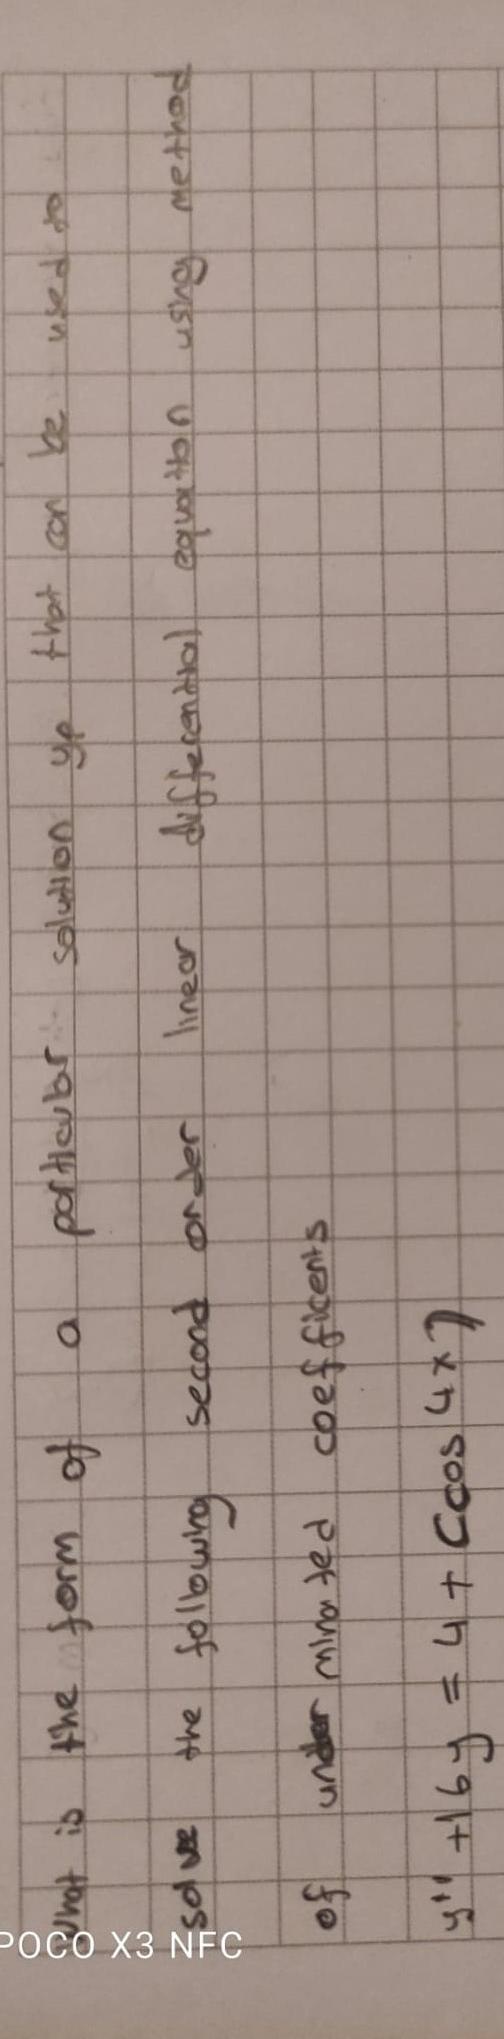 what is the form of a particular solution yp that can be used to
solve the following second order linear differential equation using method
of underminated coefficents
y'' +16y = 4 + (cos 4x)
POCO X3 NFC